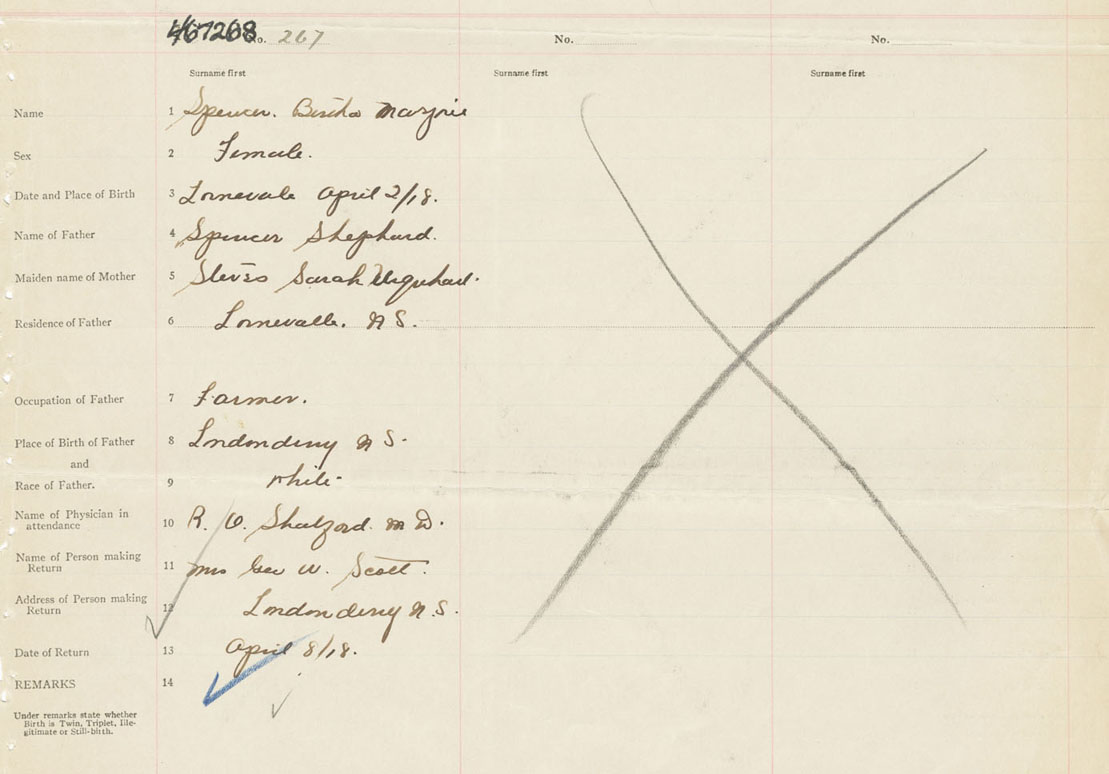 467268 No. 267 No. No.
Surname first Surname first Surname first
Name 1 Spencer. Bertha Marjorie
Sex 2 Female.
Date and Place of Birth 3 Lornevale April 2/18.
Name of Father 4 Spencer Shephard.
Maiden name of Mother 5 Sarah Urquhart.
Residence of Father 6 Lornevalle. N S.
Occupation of Father 7 Farmer.
Place of Birth of Father 8 Londonderry N S.
and
Race of Father. 9 White
Name of Physician in
attendance 10 R. O. Shatford M D.
Name of Person making
Return 11 Mrs Geo W. Scott.
Address of Person making
Return 12 Londonderry N.S.
Date of Return 13 April 8/18.
REMARKS 14
Under remarks state whether
Birth is Twin, Triplet, Ille-
gitimate or Still-birth.